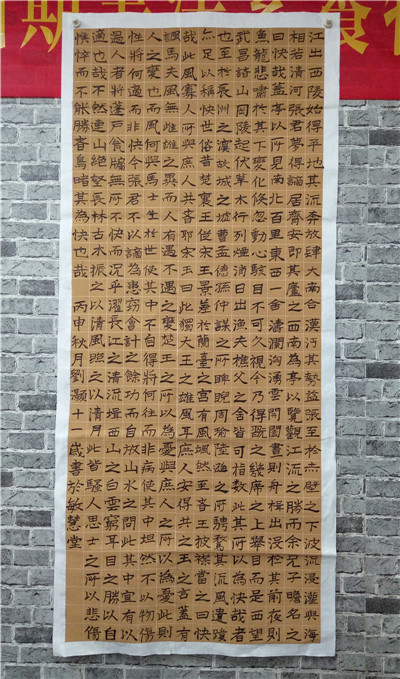 江出西陵始得平地其流奔放肆大南合漢沔其勢益張至於赤壁之下波流浸灌與海
相若清河張君夢得謫居齊安即其廬之西南為亭以覽觀江流之勝而余兄子瞻名之
曰快哉蓋亭以所見南北百里東西一舍濤瀾洶湧雲開闔晝則舟楫出沒於其前夜則
魚龍悲嘯於其下變化倏忽動心駭目不可久視今乃得翫之幾席之上舉目而足西望
武昌諸山岡陵起伏草木行列煙消日出漁夫樵父之舍皆可指數此其所以為快哉者
也至於長洲之濱故城之墟曹孟德孫仲謀之所睥睨周瑜陸遜之所騁騖其流風遺跡
亦足以稱快世俗昔楚襄王從宋玉景差於蘭臺之宮有風颯然至者王披襟當之曰快
哉此風寡人所與庶人共者耶宋玉曰此獨大王之雄風耳庶人安得共之王之言蓋有
諷焉夫風無雌雄之異而人有遇不遇之變楚王之所以為憂與庶人之所以為憂此則
人之變也而風何與焉士生於世使其中不自得將何往而非病使其中坦然不以物傷
性將何適而非快今張君不以謫為患竊會計之餘功而自放山水之間此其中宜有以
過人者將蓬戶甕牖無所不快而況乎濯長江之清流揖西山之白雲窮耳目之勝以自
適也哉不然連山絕壑長林古木振之以清風照之以清月此皆騷人思士之所以悲傷
憔悴而不能勝者烏睹其為快也哉 丙申秋月劉灝十一歲書於敏慧堂